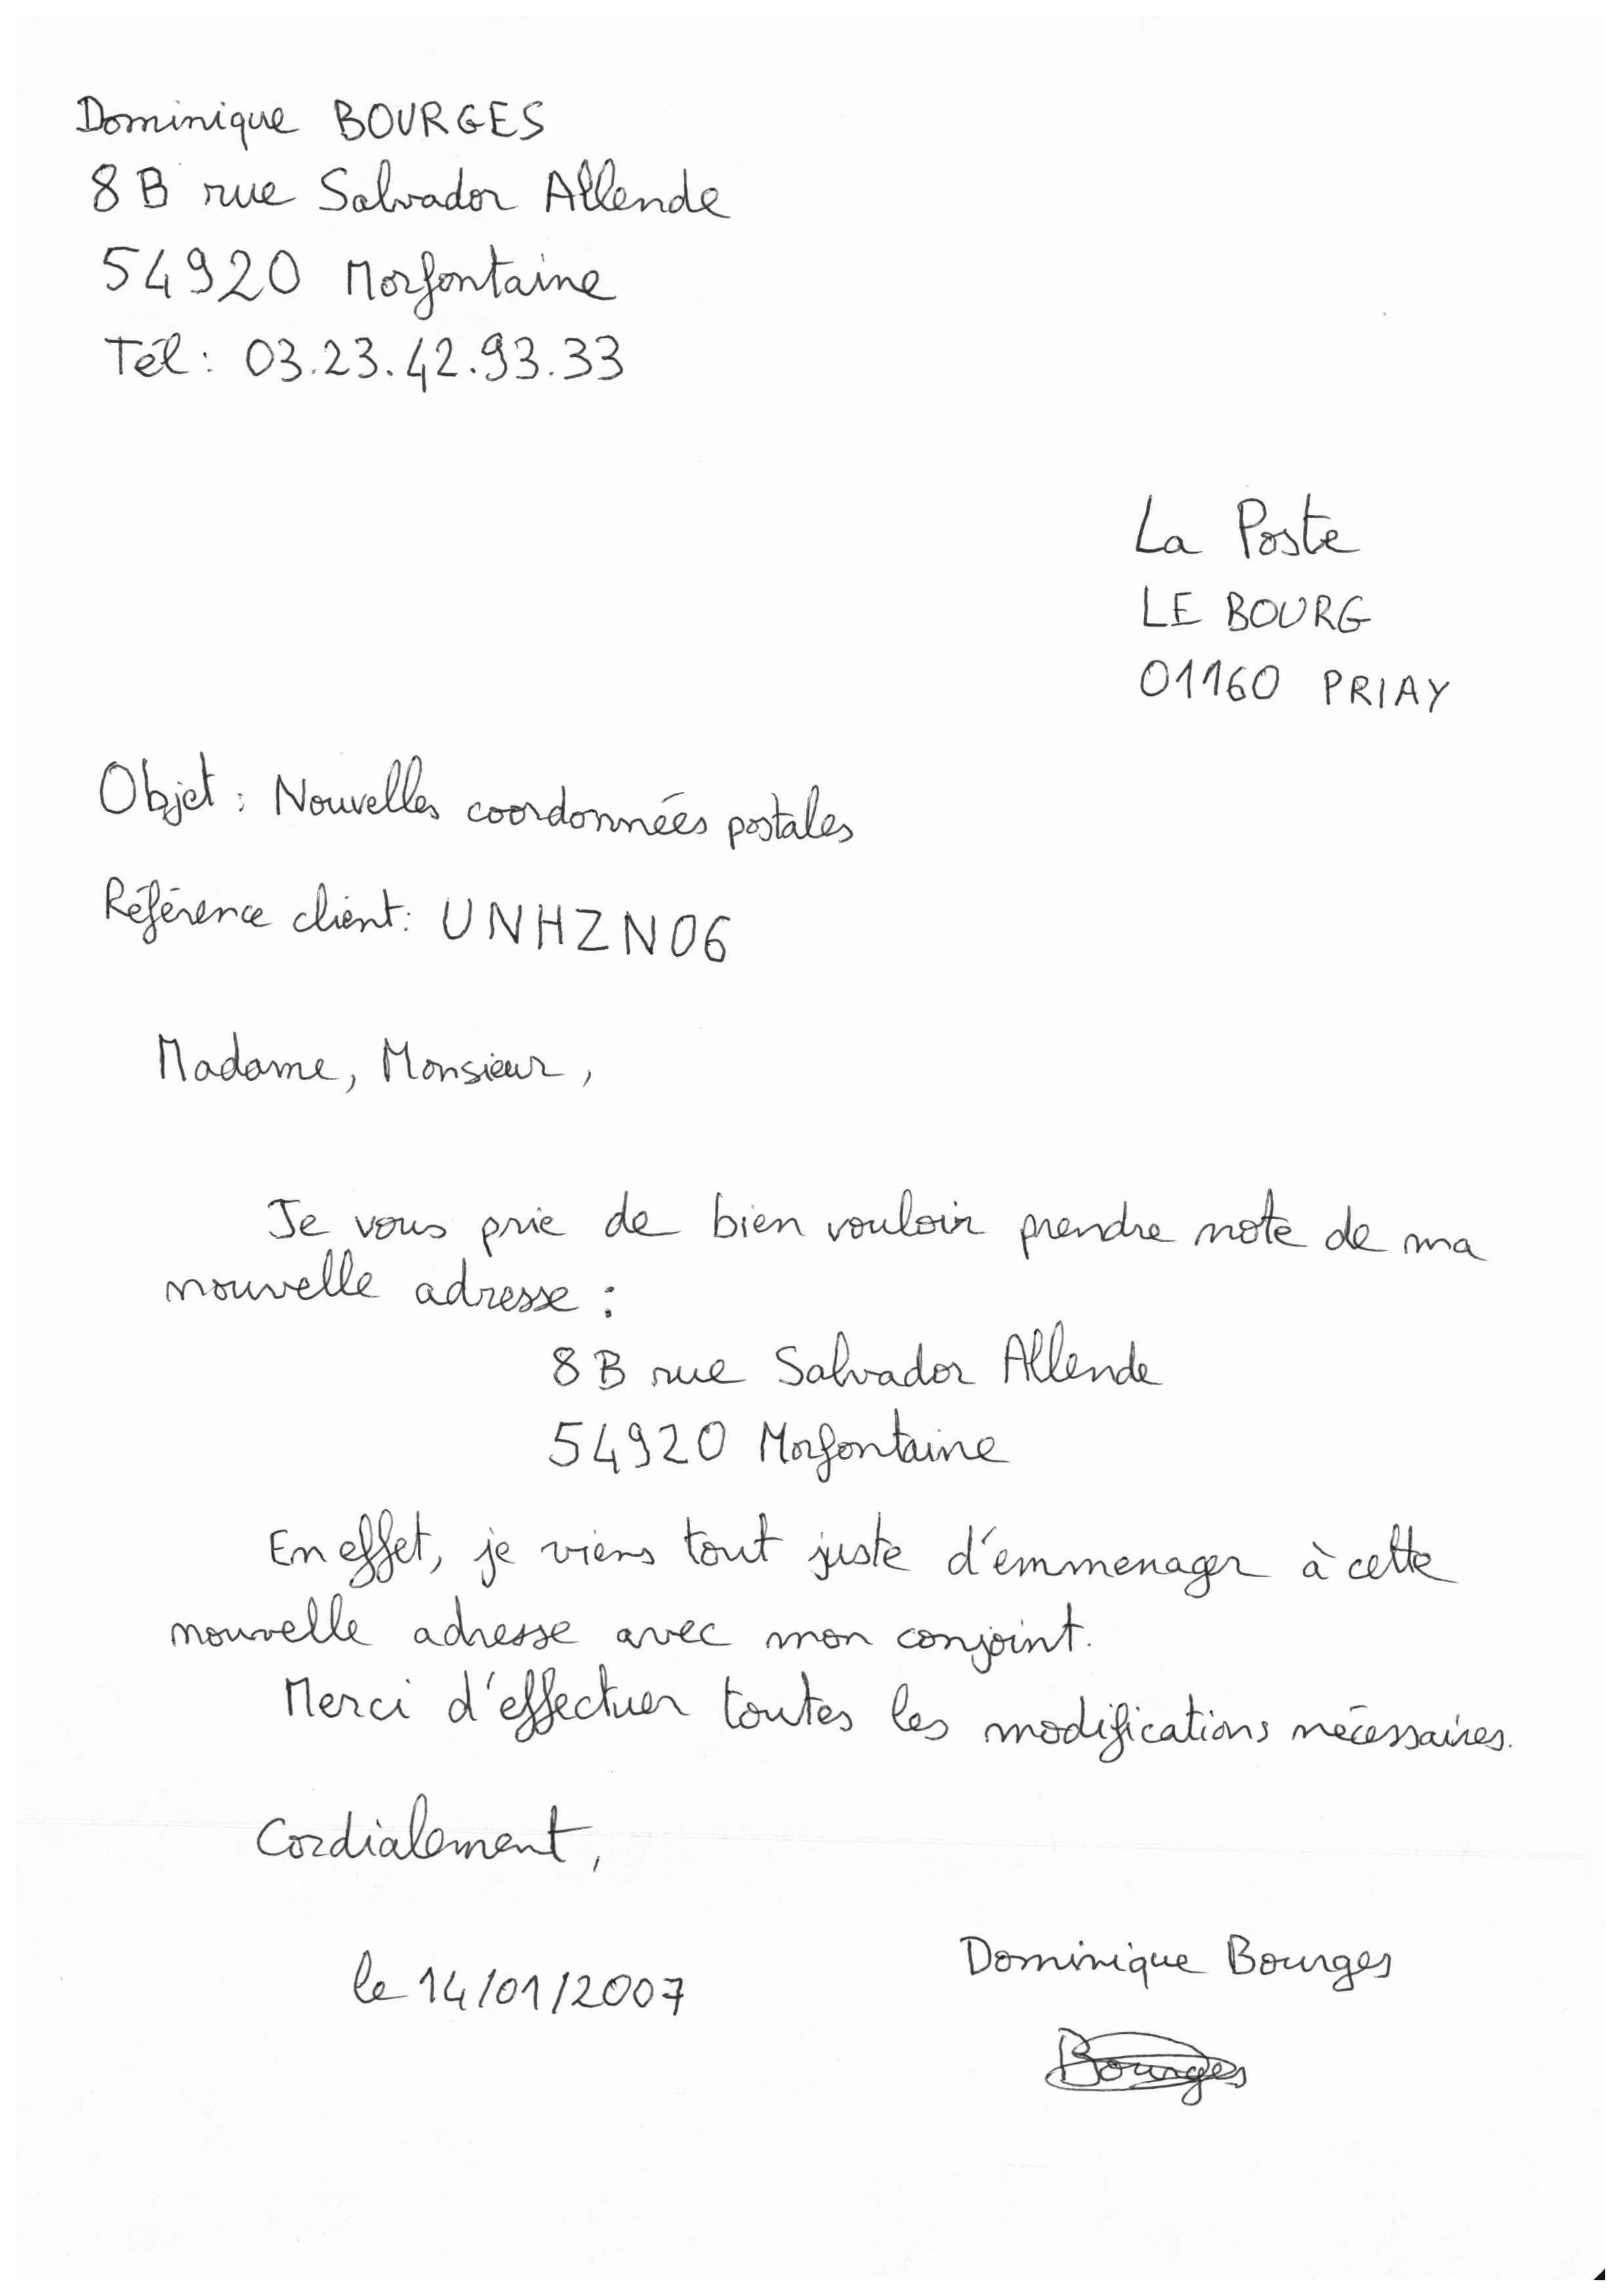 Dominique BOURGES
8 B rue Salvador Allende
54920 Morfontaine
Tél : 03.23.42.93.33
La Poste
LE BOURG
01160 PRIAY
Objet : Nouvelles coordonnées postales
Référence client : UNHZN06
Madame, Monsieur,
Je vous prie de bien vouloir prendre note de ma
nouvelle adresse :
8 B rue Salvador Allende
54920 Morfontaine
En effet, je viens tout juste d'emmenager à cette
nouvelle adresse avec mon conjoint.
Merci d'effectuer toutes les modifications nécessaires.
Cordialement,
Dominique Bourges
le 14/01/2007
Bourges